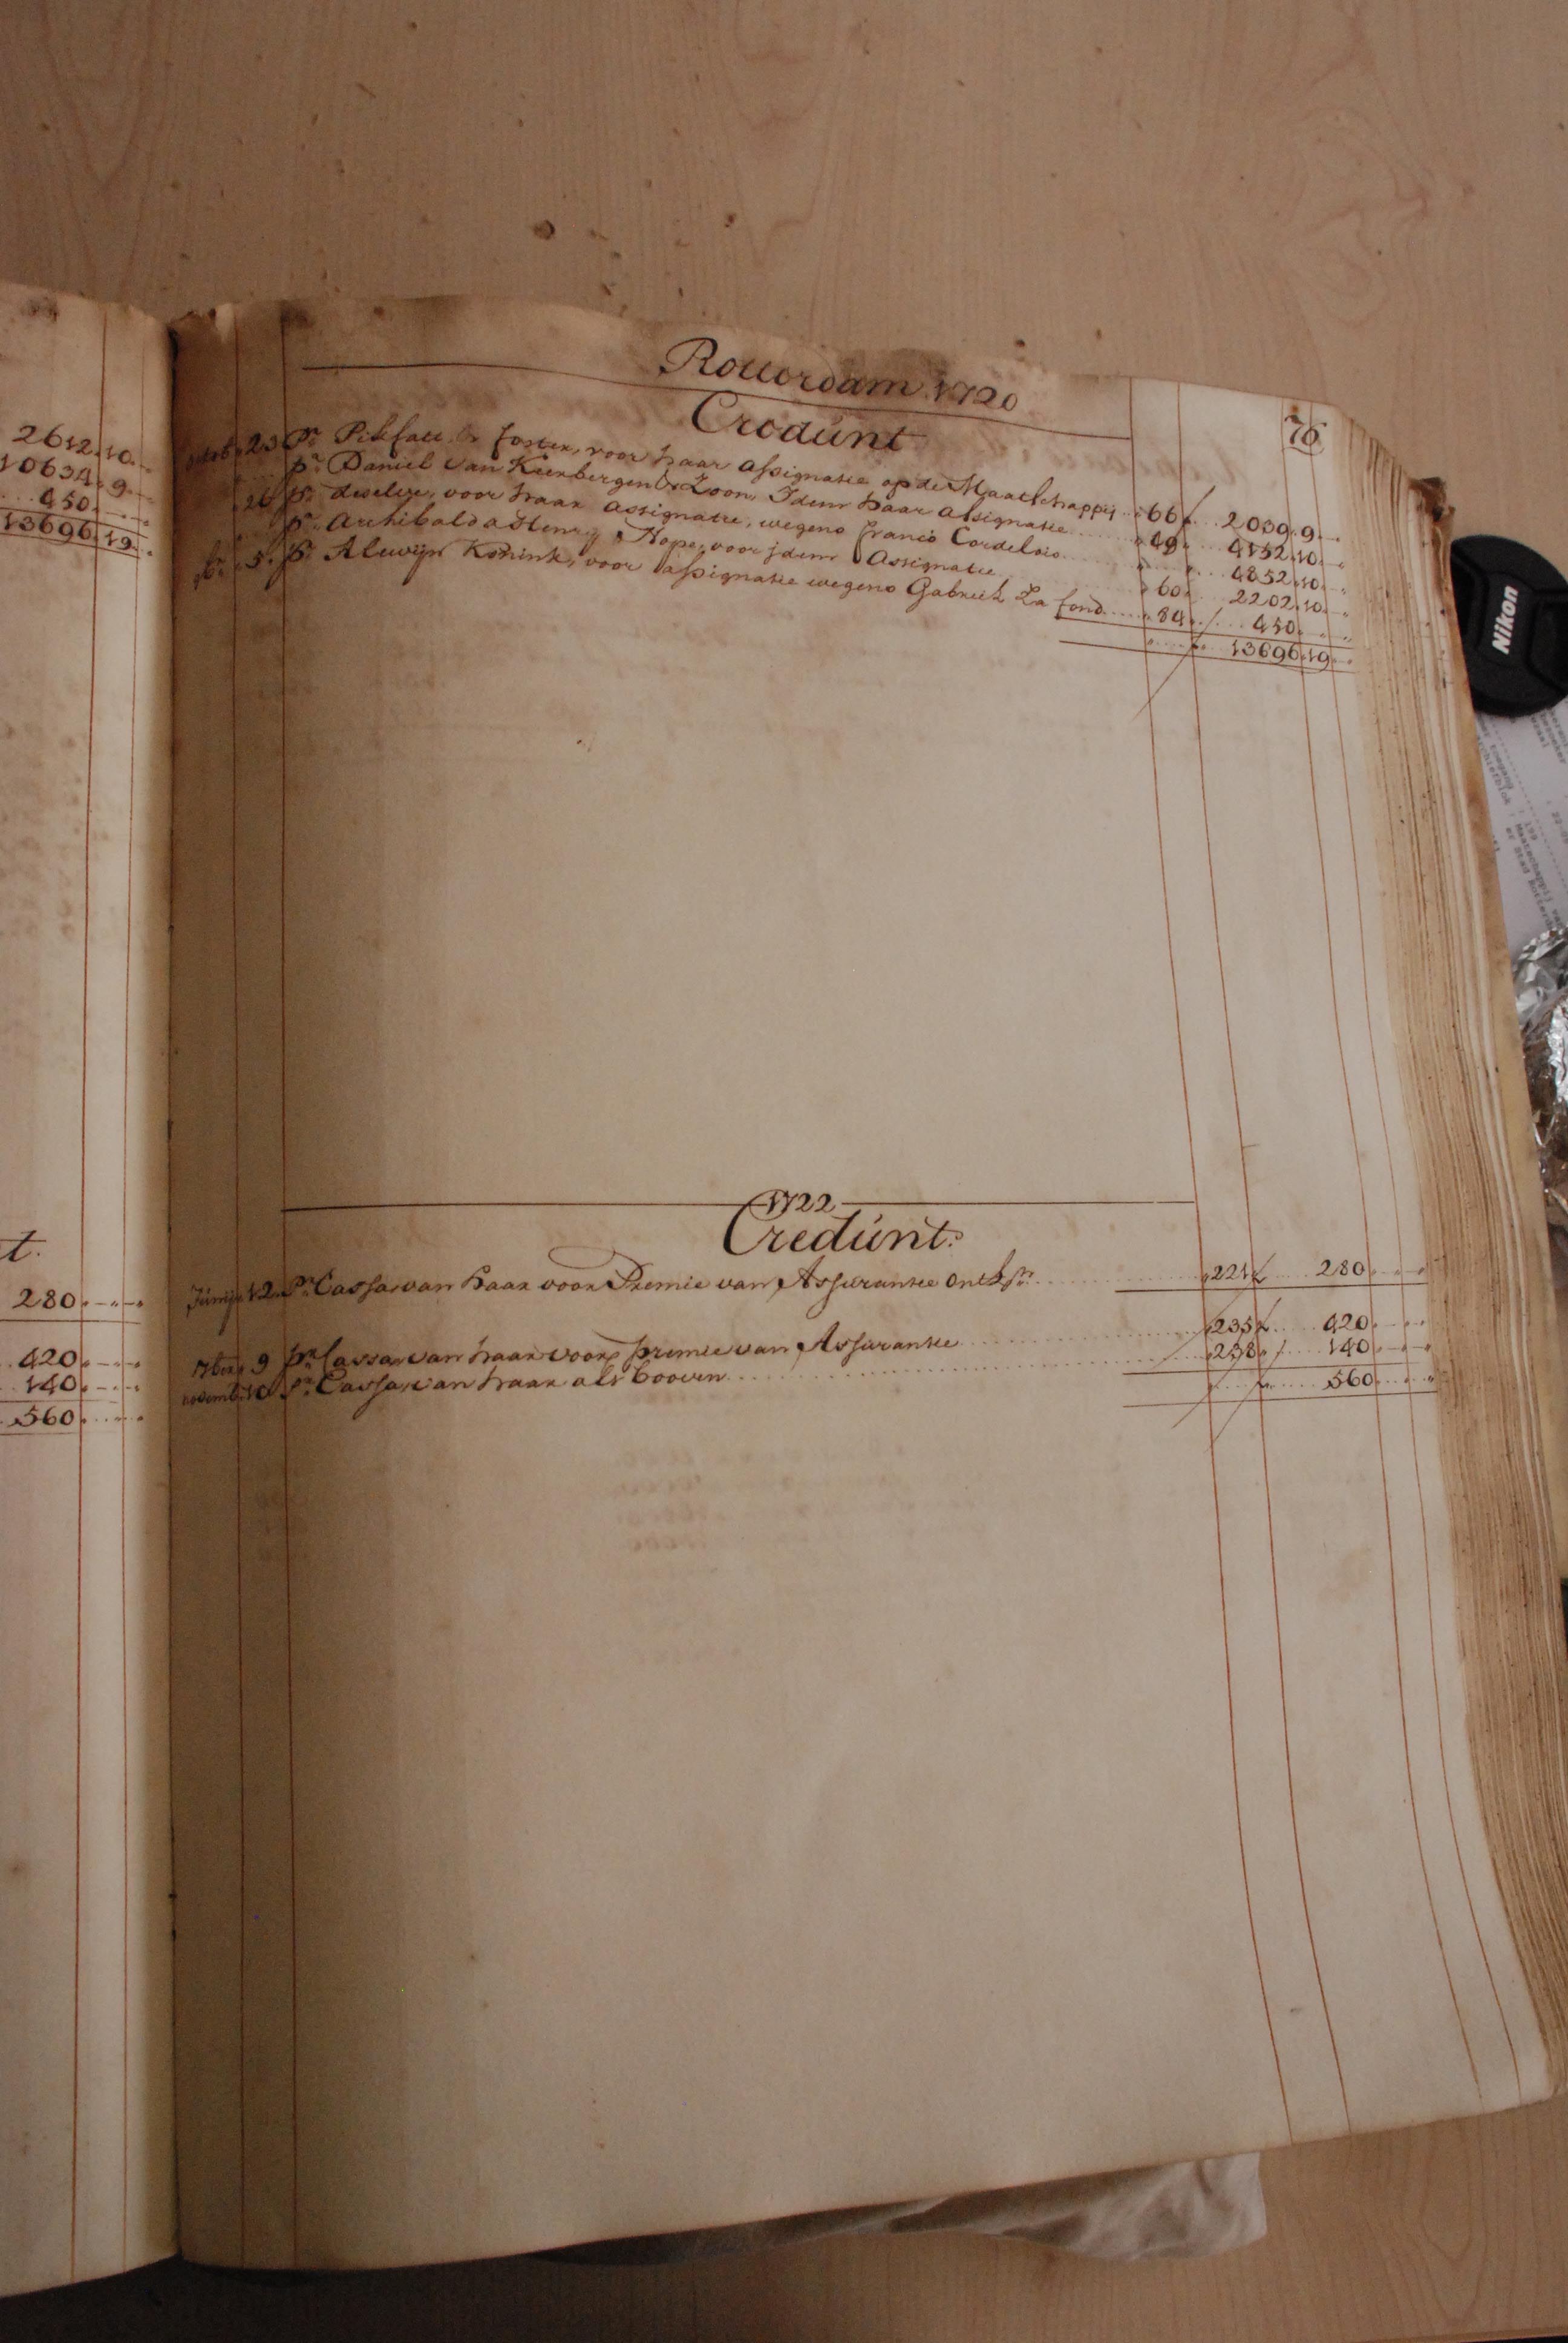 2612.10.
10634.9.
450.
13696.19.
t.
280.
420.
140.
560.
Rotterdam 1720
Credunt
76
Octob. 23 Pr. Pikfatt & foster, voor haar assignatie op de Maatschappij 66 f 2039.9.
pr. Daniel van Kuenbergen & Zoon, Idem haar assignatie 49 4152.10.
26 pr. deselve, voor haar assignatie, wegens Francis Cordelois 4852.10.
pr. Archibald & Henry Hope, voor jdem Assignatie 60 2202.10.
5. pr. Alewijn Konink, voor assignatie wegens Gabriel La fond 84 450.
13696.19.
1722
Credunt.
Junij 12 Pr. Cassa van haar voor Premie van Assurantie 221 f 280.
7ber 9 pr Cassa van haar voor premie van Assurantie 235 f 420.
novemb. 10 Pr. Cassa van haar als booven 238 140.
f 560.
Nikon